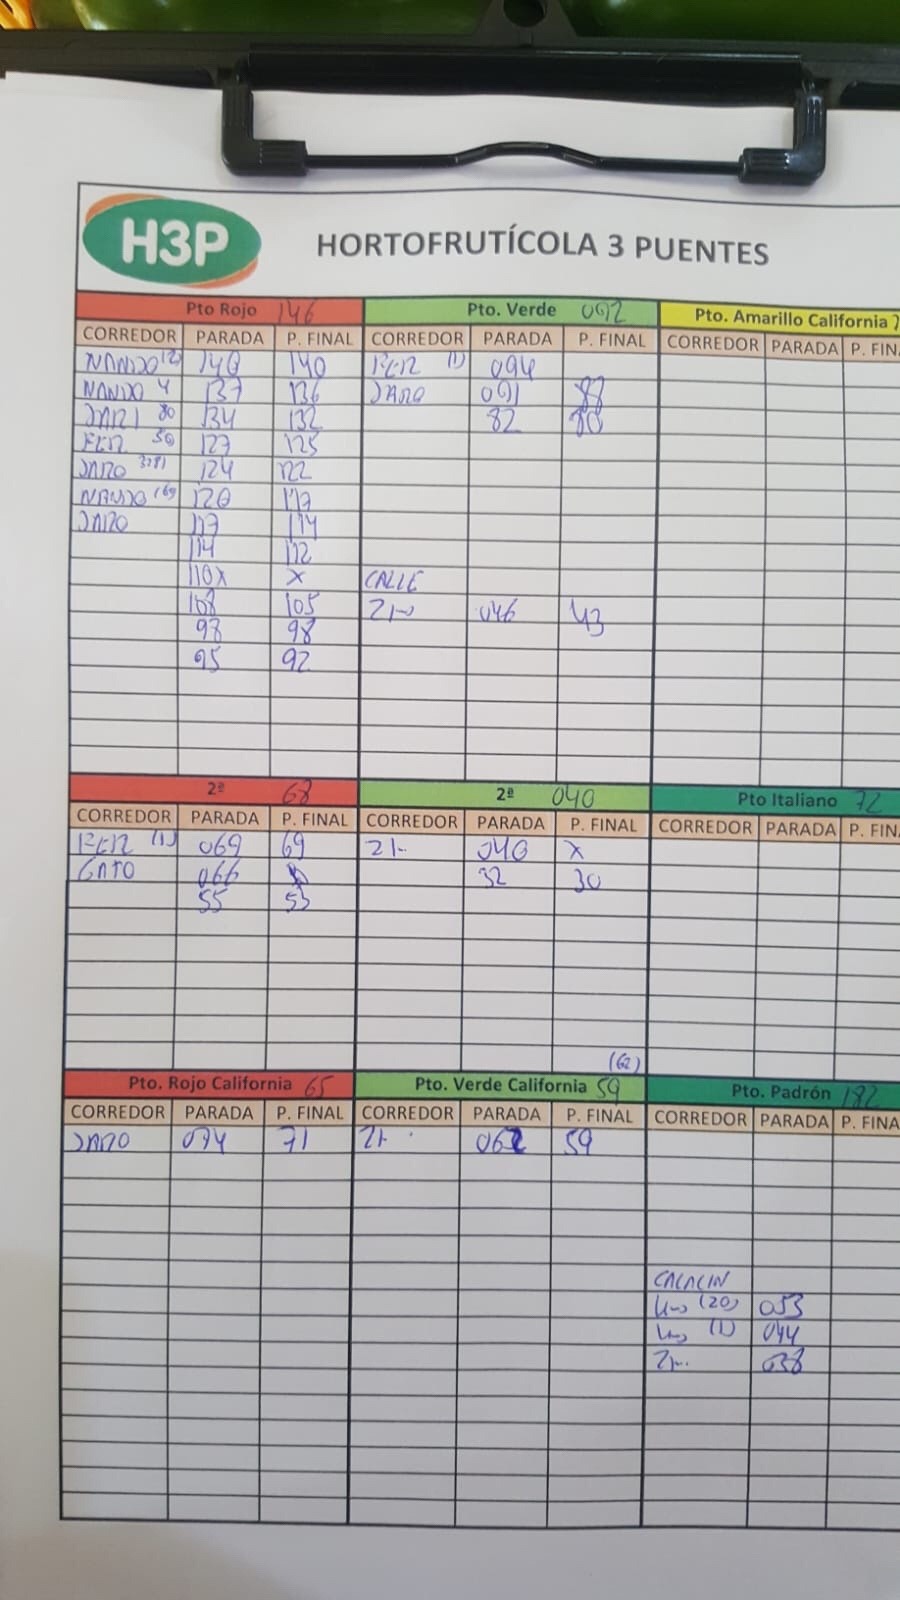 H3P HORTOFRUTÍCOLA 3 PUENTES
Pto Rojo 146 Pto. Verde 092 Pto. Amarillo California
CORREDOR PARADA P. FINAL CORREDOR PARADA P. FINAL CORREDOR PARADA P. FINA
NANDO (2) 140 140 FER (1) 094
NANDO 4 137 136 DARO 091 88
DARI 80 134 132 82 80
FER 50 127 125
DARO 124 122
NANDO 120 117
DARO 117 114
114 112
110X X CALLE
108 105 21 046 43
98 98
95 92
2ª 68 2ª 040 Pto Italiano 72
CORREDOR PARADA P. FINAL CORREDOR PARADA P. FINAL CORREDOR PARADA P. FINA
FER (1) 069 69 21 040 X
GATO 066 32 30
55 53
(62)
Pto. Rojo California 65 Pto. Verde California 59 Pto. Padrón 182
CORREDOR PARADA P. FINAL CORREDOR PARADA P. FINAL CORREDOR PARADA P. FINA
DARO 074 71 21 062 59
CALACIN
(20) 053
(1) 044
038